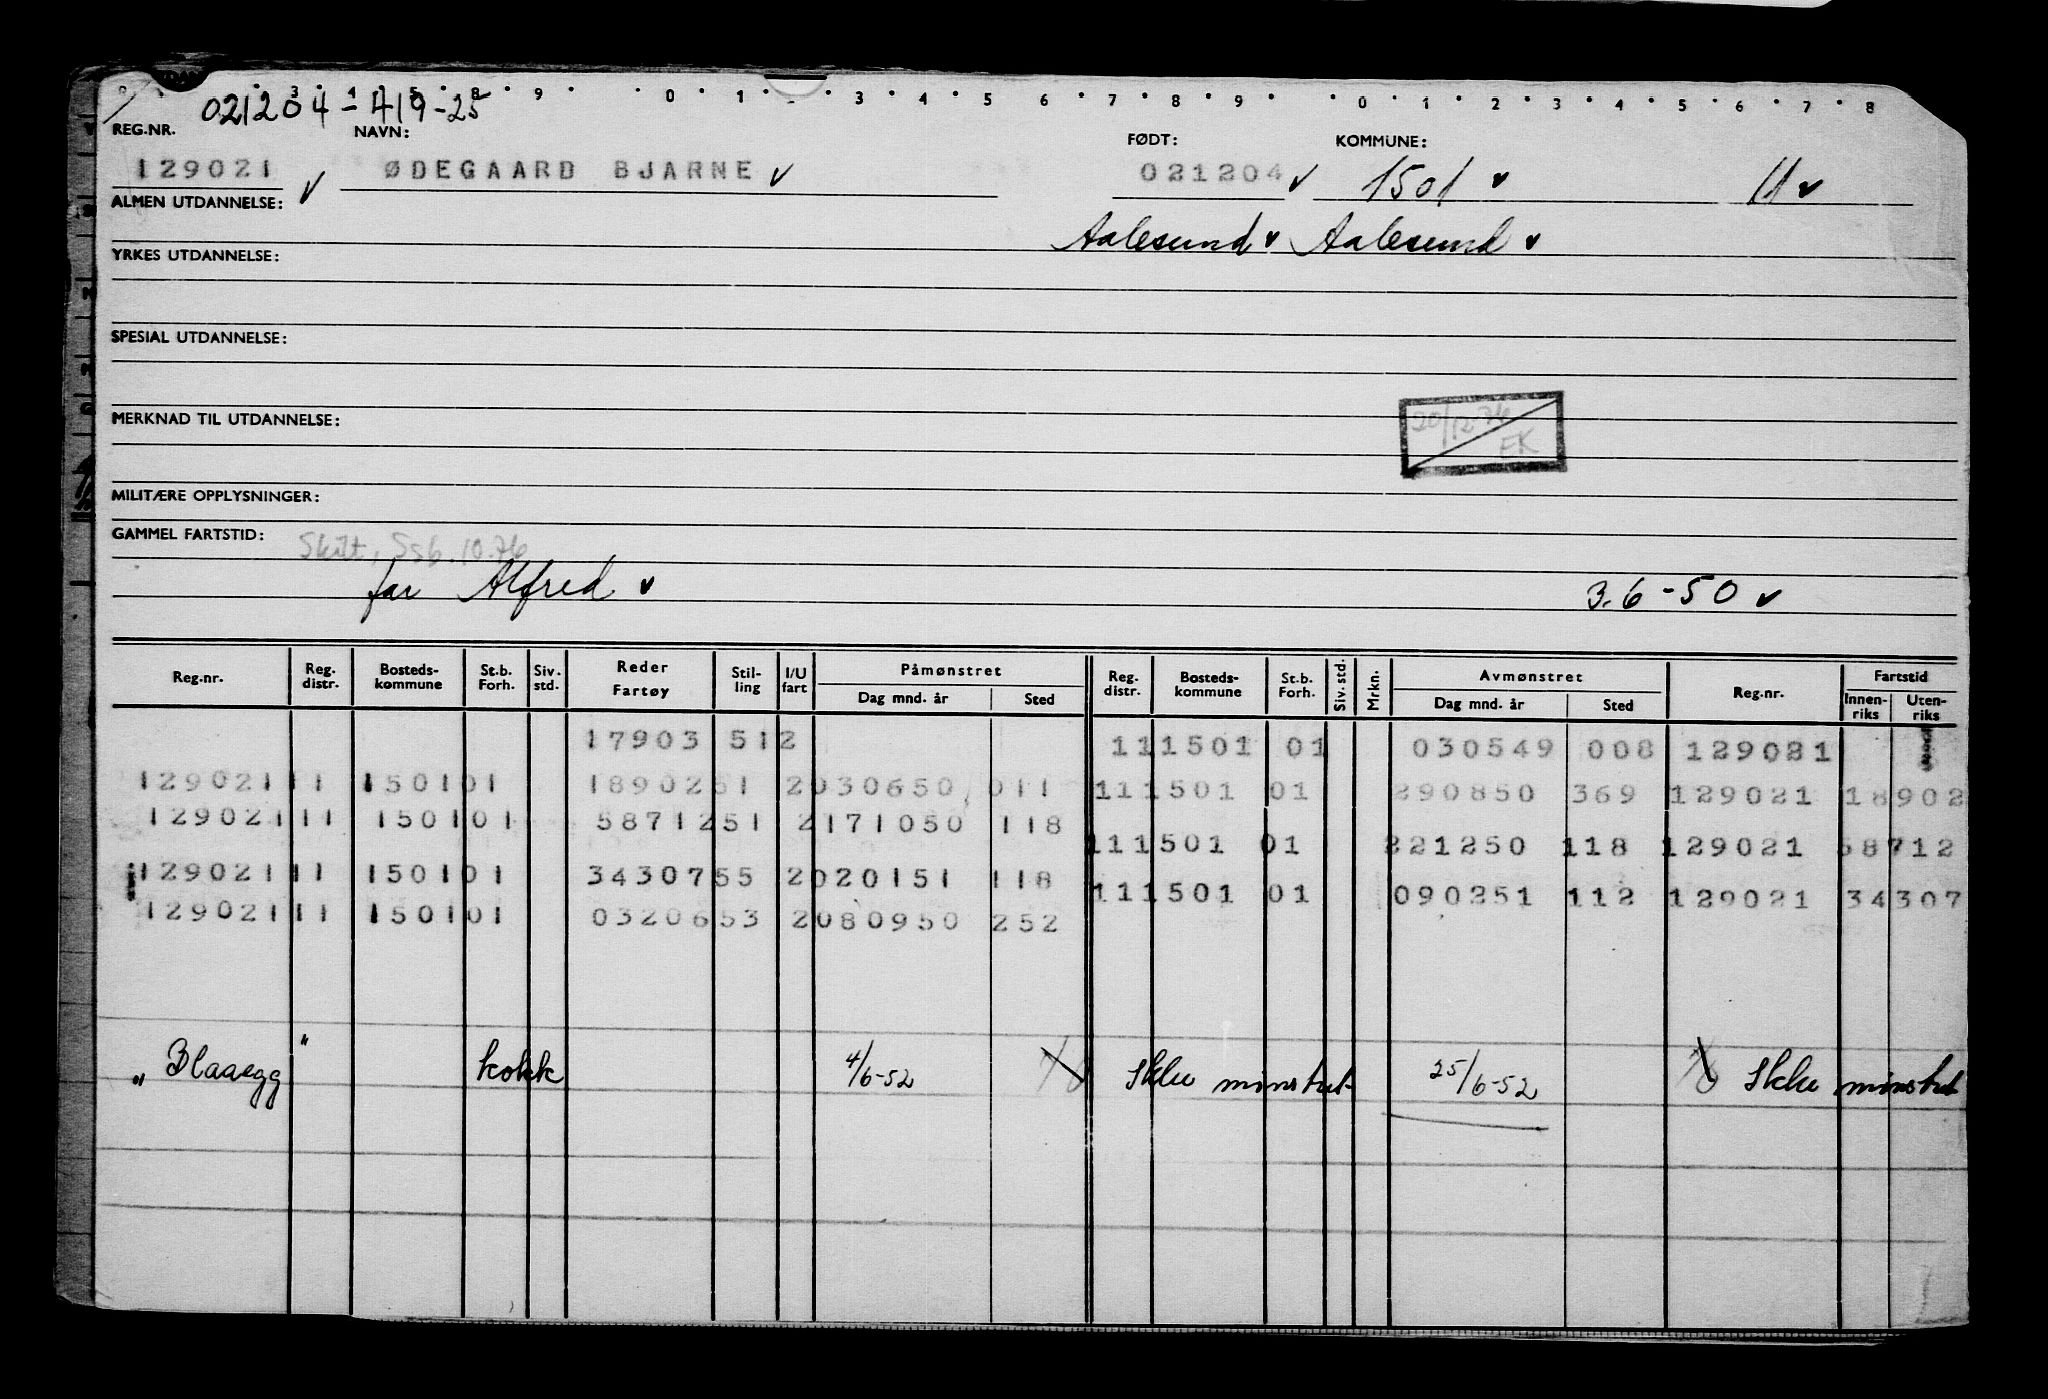 021204-419-25
3 4 5 8 9 0 1 3 4 5 6 7 8 9 0 1 2 3 4 5 6 7 8
REG.NR. NAVN: FØDT: KOMMUNE:
129021 ØDEGAARD BJARNE 021204 1501 11
ALMEN UTDANNELSE:
Aalesund Aalesund
YRKES UTDANNELSE:
SPESIAL UTDANNELSE:
MERKNAD TIL UTDANNELSE:
20/12-76
EK
MILITÆRE OPPLYSNINGER:
GAMMEL FARTSTID: Skilt, Ssb. 10.76
far Alfred 3-6-50
Reg.nr. Reg. distr. Bosteds-kommune St.b. Forh. Siv. std. Reder Fartøy Stil-ling I/U fart Påmønstret Dag mnd. år Sted Reg. distr. Bosteds-kommune St.b. Forh. Siv. std. Mrkn. Avmønstret Dag mnd. år Sted Reg.nr. Fartstid Innen-riks Uten-riks
17903 512 111501 01 030549 008 129021
129021 11 1501 01 18902 51 2 030650 011 111501 01 290850 369 129021 18902
129021 11 1501 01 58712 51 2 171050 118 111501 01 221250 118 129021 58712
129021 11 1501 01 34307 55 2 020151 118 111501 01 090251 112 129021 34307
129021 11 1501 01 03206 53 2 080950 252
„Blaaegg" kokk 4/6-52 Ikke mønstret 25/6-52 Ikke mønstret